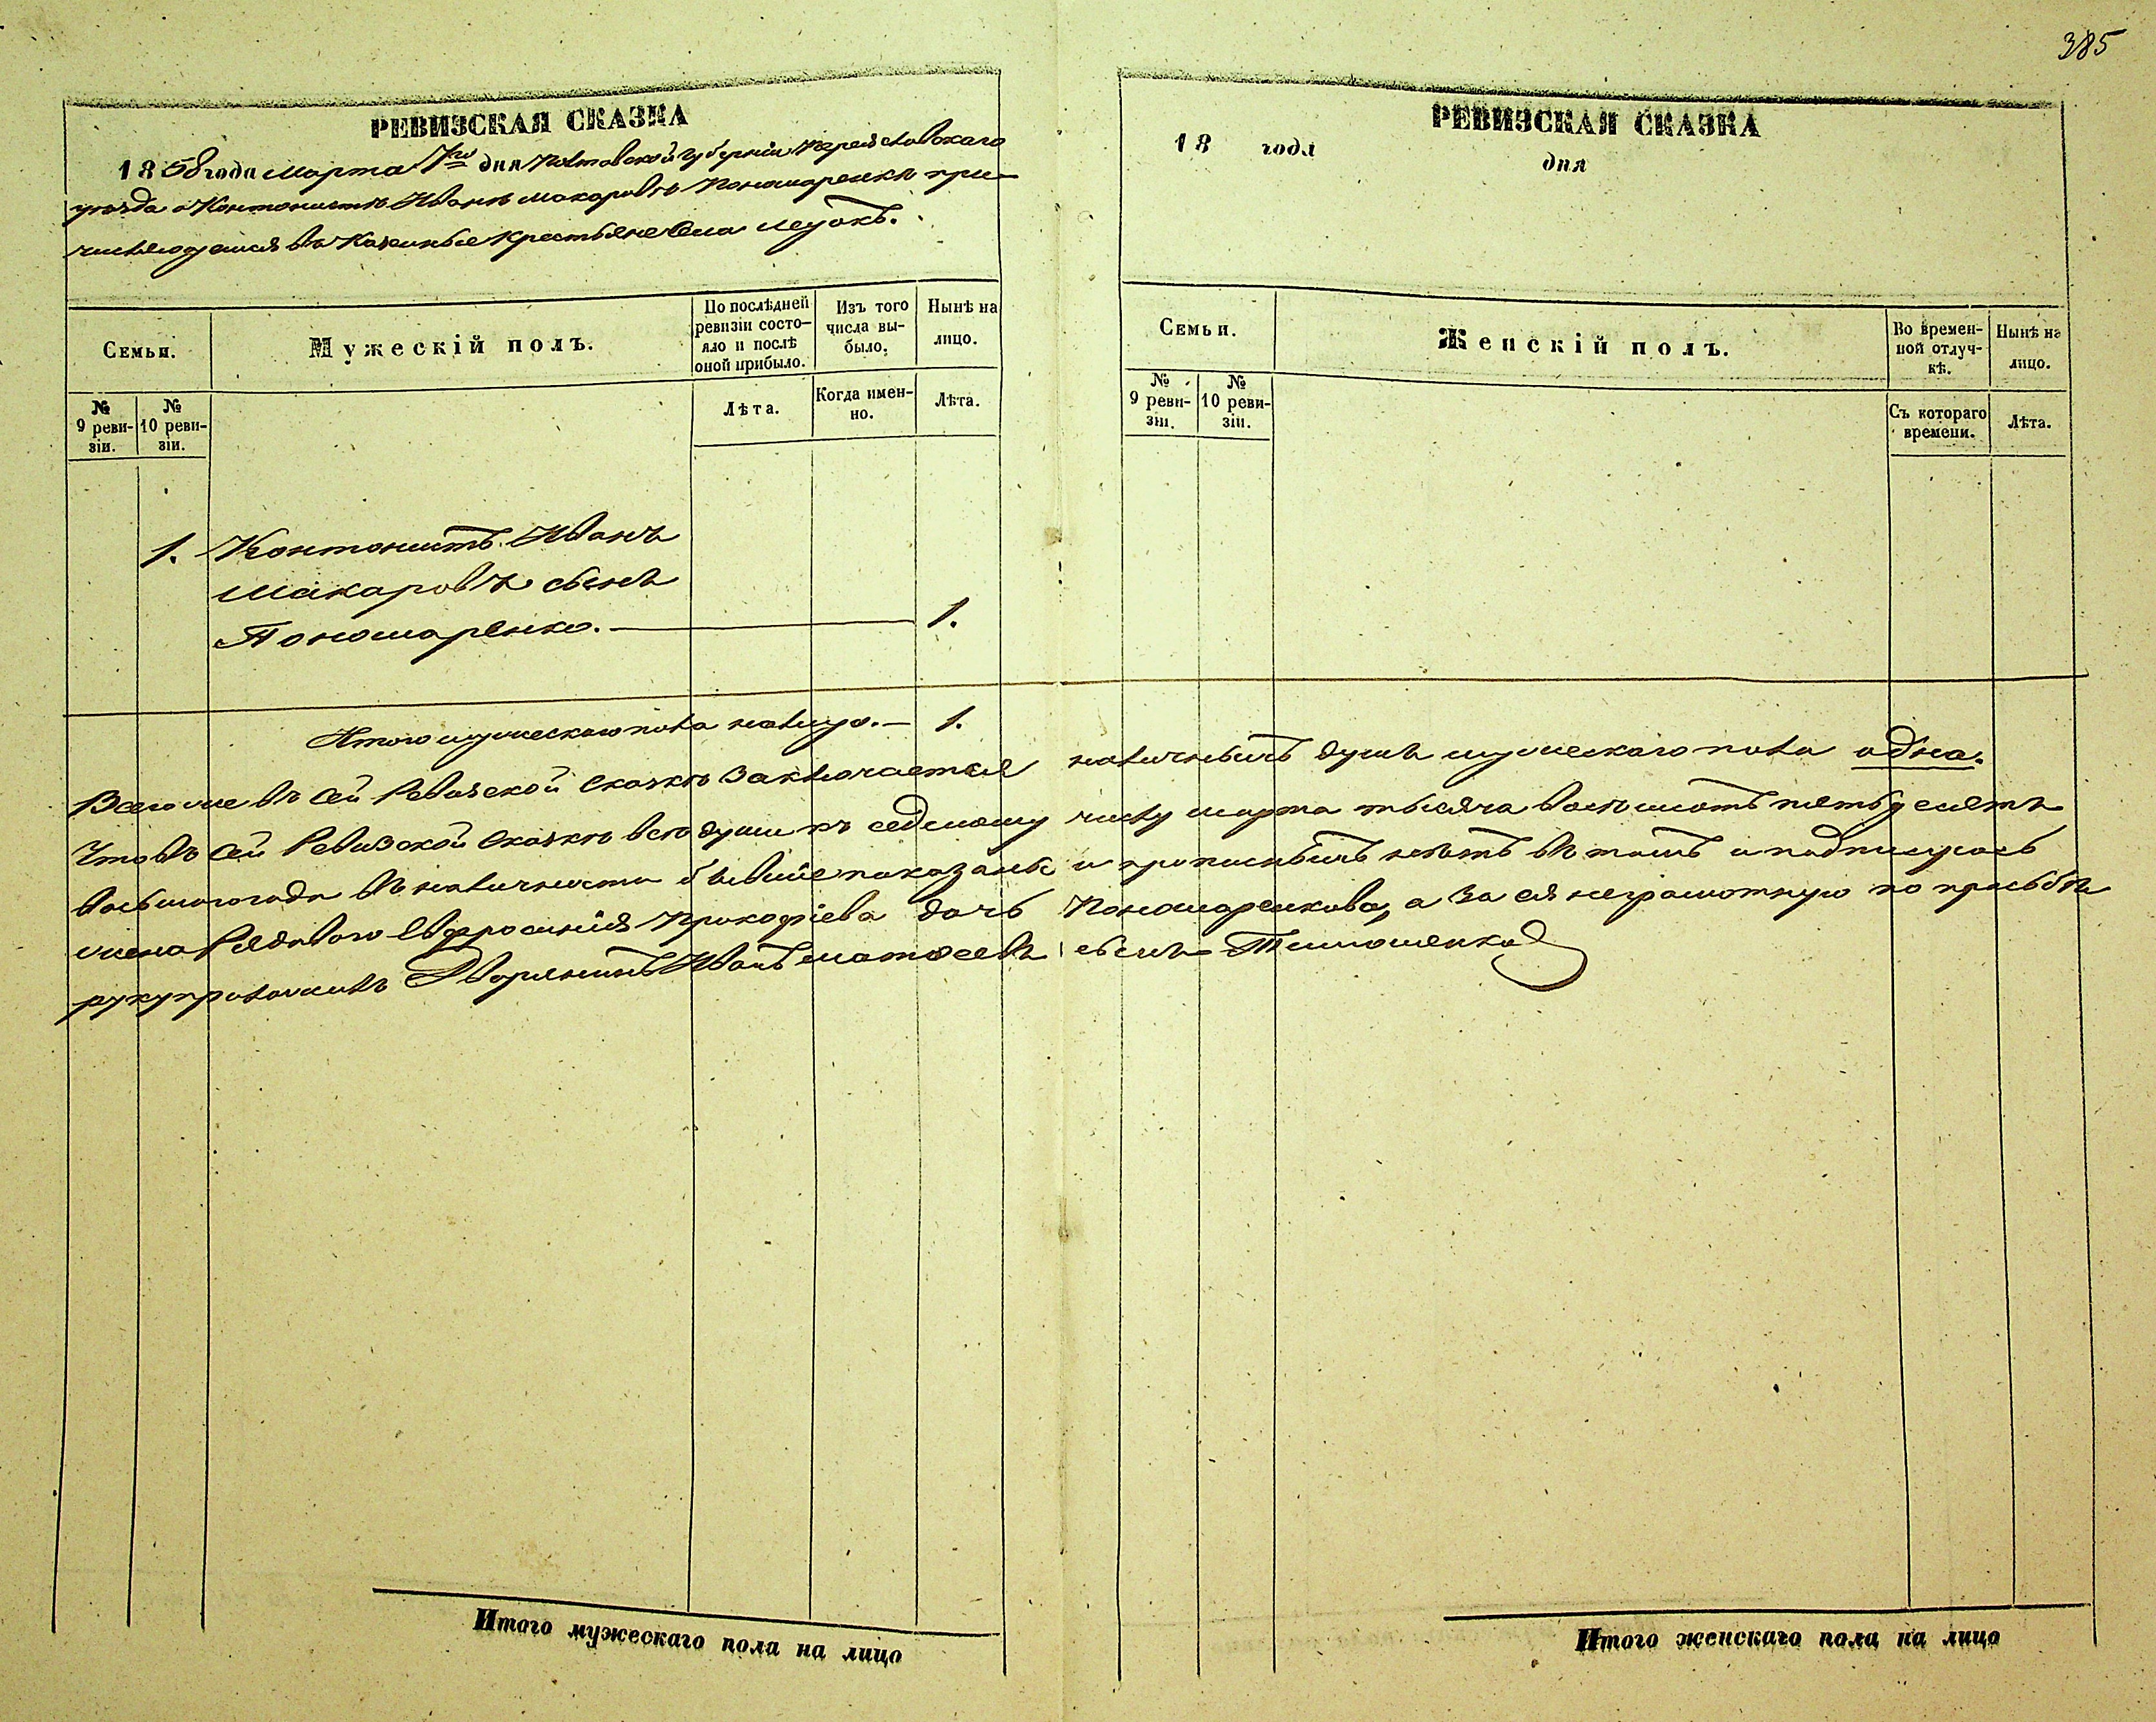 385
РЕВИЗСКАЯ СКАЗКА
1858 года Марта 7го дня Полтавской Губерніи Переяславскаго
уезда о Кантонистѣ Иванѣ Макаровѣ Пономаренкѣ при-
числяющемся въ Казенные Крестьяне Села
Семьи.
Мужескій полъ.
По послѣдней ревизіи состо-
яло и послѣ оной прибыло.
Изъ того числа вы-
было.
Нынѣ на лицо.
№ 9 реви-
зіи.
№ 10 реви-
зіи.
Лѣта.
Когда имен-
но.
Лѣта.
1. Кантонистъ Иванъ
Макаровъ сынъ
Пономаренко. — 1.
Итого мужескаго пола налицо. — 1.
РЕВИЗСКАЯ СКАЗКА
18 года
дня
Семьи.
Женскій полъ.
Во времен-
ной отлуч-
кѣ.
Нынѣ на лицо.
№ 9 реви-
зіи.
№ 10 реви-
зіи.
Съ котораго времени.
Лѣта.
Всего же въ сей Ревизской Сказкѣ Заключается наличныхъ душъ мужескаго пола одна.
Что въ сей Ревизской Сказкѣ все души къ седьмому числу марта тысяча восемьсотъ пятьдесятъ
восьмого года въ наличности бывшіе показаны и прописныхъ нѣтъ въ томъ и подписуюсь
жена Рядового Евфросинія Прокофіева дочь Пономаренкова, а за ея неграмотную по прозьбѣ
руку приложилъ Дворянинъ Иванъ Матвеевъ сынъ Тимошенко
Итого мужескаго пола на лицо
Итого женскаго пола на лицо